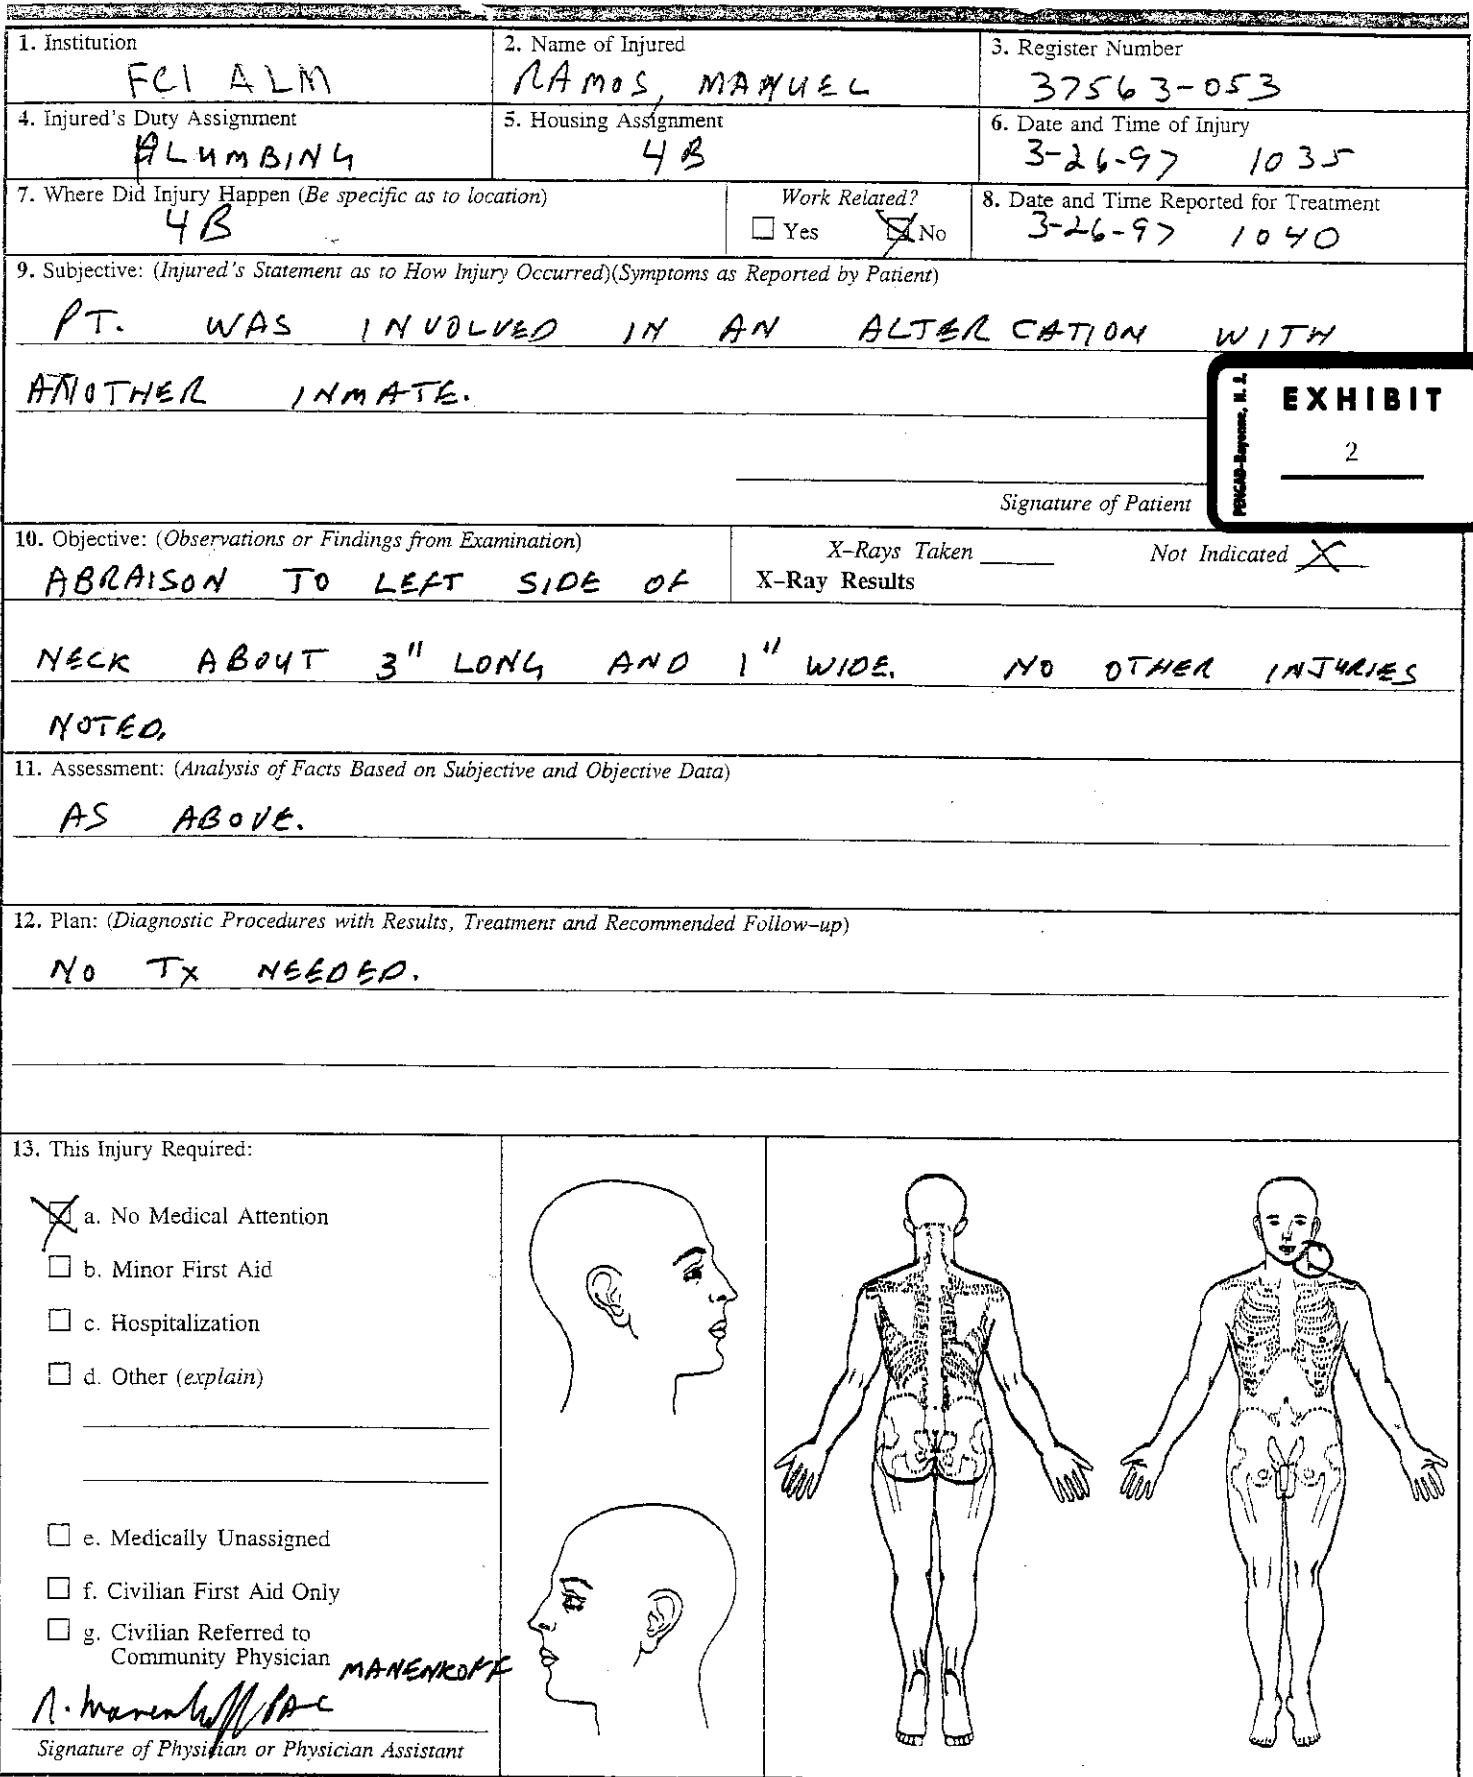 1. Institution
FCI ALM
2. Name of Injured
RAMOS, MANUEL
3. Register Number
37563-053
4. Injured's Duty Assignment
PLUMBING
5. Housing Assignment
4B
6. Date and Time of Injury
3-26-97 1035
7. Where Did Injury Happen (Be specific as to location)
4B
Work Related?
Yes No
8. Date and Time Reported for Treatment
3-26-97 1040
9. Subjective: (Injured's Statement as to How Injury Occurred)(Symptoms as Reported by Patient)
PT. WAS INVOLVED IN AN ALTERCATION WITH
ANOTHER INMATE.
PENGAD-Bayonne, N. J.
EXHIBIT
2
Signature of Patient
10. Objective: (Observations or Findings from Examination)
X-Rays Taken Not Indicated X
X-Ray Results
ABRAISON TO LEFT SIDE OF
NECK ABOUT 3" LONG AND 1" WIDE. NO OTHER INJURIES
NOTED.
11. Assessment: (Analysis of Facts Based on Subjective and Objective Data)
AS ABOVE.
12. Plan: (Diagnostic Procedures with Results, Treatment and Recommended Follow-up)
NO TX NEEDED.
13. This Injury Required:
a. No Medical Attention
b. Minor First Aid
c. Hospitalization
d. Other (explain)
e. Medically Unassigned
f. Civilian First Aid Only
g. Civilian Referred to
Community Physician
MANENKOFF
R. Manenkoff PAC
Signature of Physician or Physician Assistant